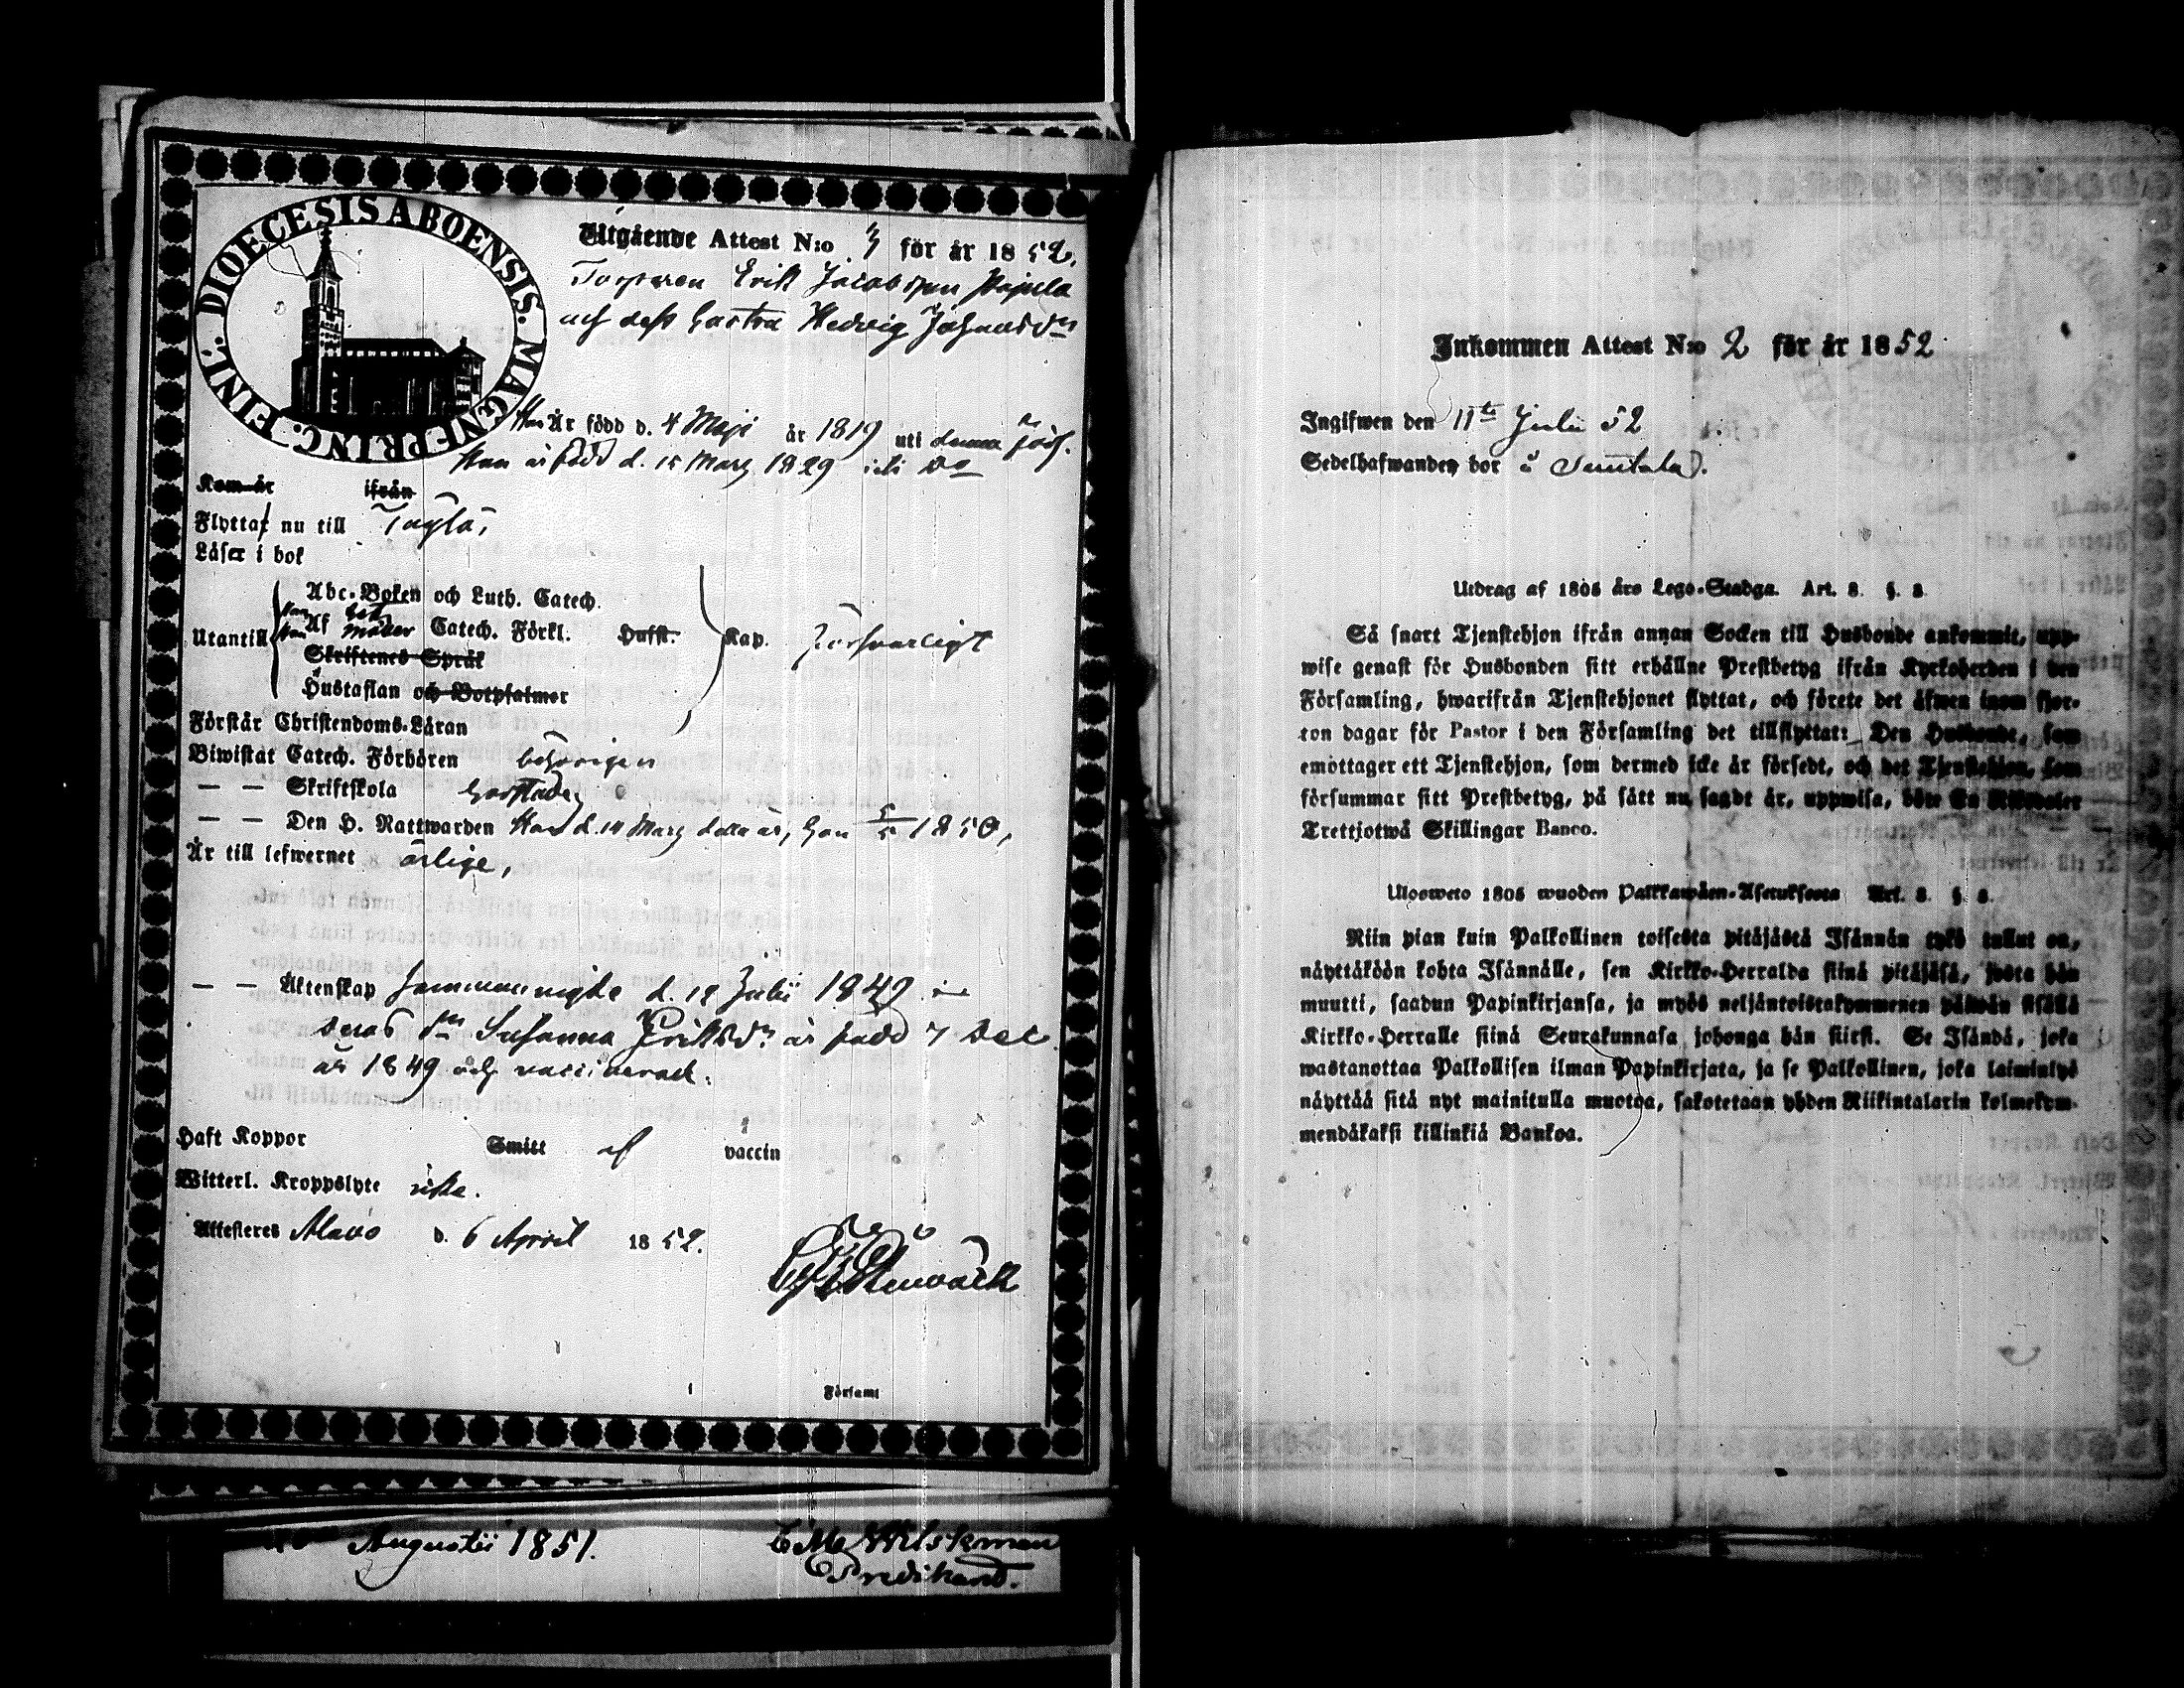 DIOECESIS ABOENSIS. MAGNEPRINC. FINL.
Utgående Attest N:o 3 för år 1852.
Torparen Erik Jacobsson Pajula
och dess hustru Hedvig Johansdr
Han Är född d. 4 Maji år 1819 uti denna förs.
Hon är född d. 15 Mars 1829 uti Do
Kom år ifrån
Flyttar nu till
Läser i bok
Abc-Boken och Luth. Catech.
Utantill Af Möller Catech. Förkl. Husst. Kap. försvarligt
Skriftenes Språk
Hustaflan och Botpsalmer
Förstår Christendoms-Läran
Biwistat Catech. Förhören behörigen
— — Skriftskola
— — Den H. Nattwarden Han d. 14 Mars detta år, hon 1850,
Är till lefwernet ärlige,
— — Äktenskap sammanvigde d. 18 Julii 1849
deras dr Susanna Eriksdr är född 7 Dec.
år 1849 och vaccinerad.
Haft Koppor Smitt af vaccin
Witterl. Kroppslyte icke.
Attesteres Alavo d. 6 April 1852.
Församl
Augusti 1851.
Predikant.
Inkommen Attest N:o 2 för år 1852
Ingifwen den 11te Julii 52
Sedelhafwanden bor å
Utdrag af 1805 års Lego-Stadga. Art. 8. §. 8.
Så snart Tjenstehjon ifrån annan Socken till Husbonde ankommit, upp-
wise genast för Husbonden sitt erhållne Prestbetyg ifrån Kyrkoherden i den
Församling, hwarifrån Tjenstehjonet flyttat, och förete det äfwen inom fjor-
ton dagar för Pastor i den Församling det tillflyttat: Den Husbonde, som
emottager ett Tjenstehjon, som dermed icke är försedt, och det Tjenstehjon, som
försummar sitt Prestbetyg, på sätt nu sagdt är, uppwisa, böte En Riksdaler
Trettjotwå Skillingar Banco.
Ulosweto 1805 wuoden Palkkawäen-Asetuksesta Art. 8. §. 8.
Niin pian kuin Palkollinen toisesta pitäjästä Isännän tykö tullut on,
näyttäköön kohta Isännälle, sen Kirkko-Herralda siinä pitäjäsä, josta hän
muutti, saadun Papinkirjansa, ja myös neljäntoistakymmenen päiwän sisällä
Kirkko-Herralle siinä Seurakunnasa johonga hän siirsi. Se Isändä, joka
wastanottaa Palkollisen ilman Papinkirjata, ja se Palkollinen, joka laiminlyö
näyttää sitä nyt mainitulla muotoa, sakotetaan yhden Riikintalarin kolmekym-
mendäkaksi killinkiä Bankoa.